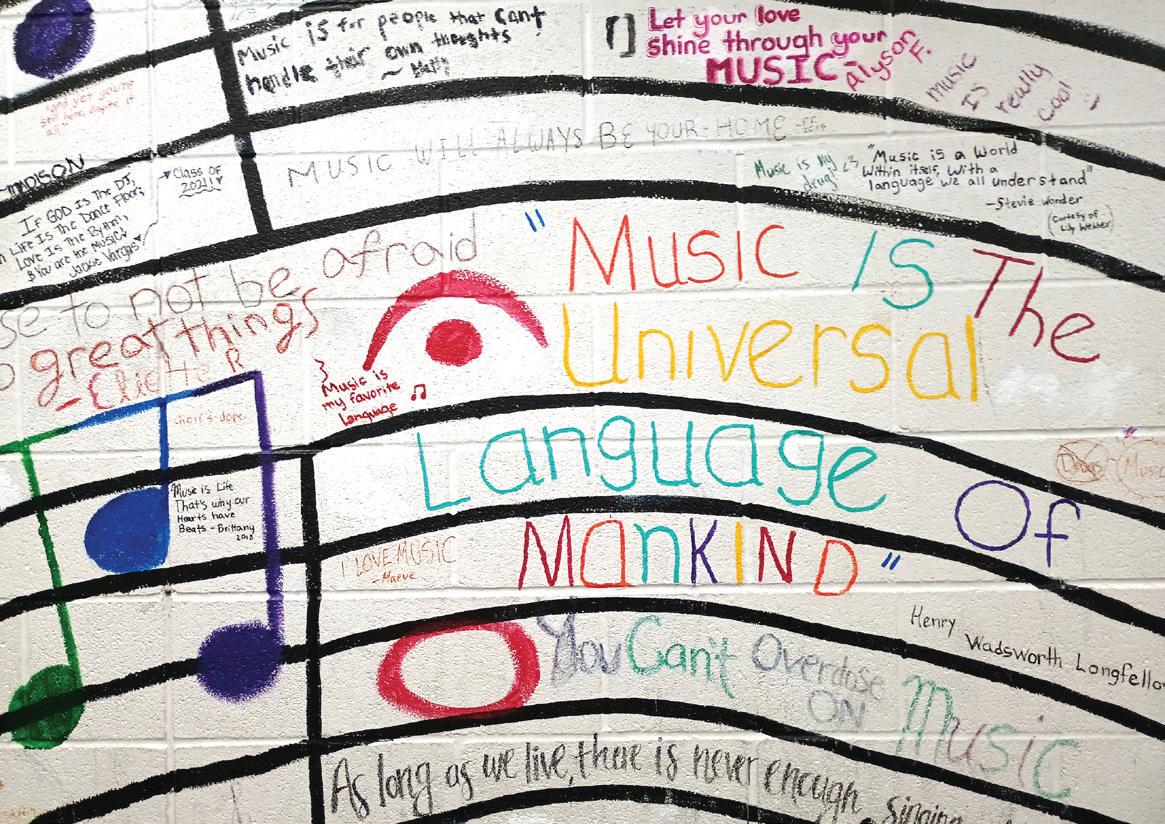 Music is for people that Can't
handle their own thoughts
Let your love
shine through your
MUSIC-
Alyson F.
music
IS
really
cool
and yet you're
still here,
MUSIC WILL ALWAYS BE YOUR HOME
Music is my
drug! <3
"Music is a World
Within itself, With a
language we all understand"
-Stevie Wonder
(Curtesy of
Lily Webber)
MADISON
CLASS OF
2021!
IF GOD IS The DJ,
Life Is The Dance Floor,
Love Is The Rythm,
& You are the Music!
Jackie Vargas
se to not be afraid
o great things
"Music IS The
Universal
Language Of
MANKIND"
Henry
Wadsworth Longfello
Music is
my favorite
Language
choir's dope.
Music is Life
That's why our
Hearts have
Beats - Brittany
2018
I LOVE MUSIC
-Maeve
Drugs (Music
You Can't Overdose
ON Music
As long as we live, there is never enough singing